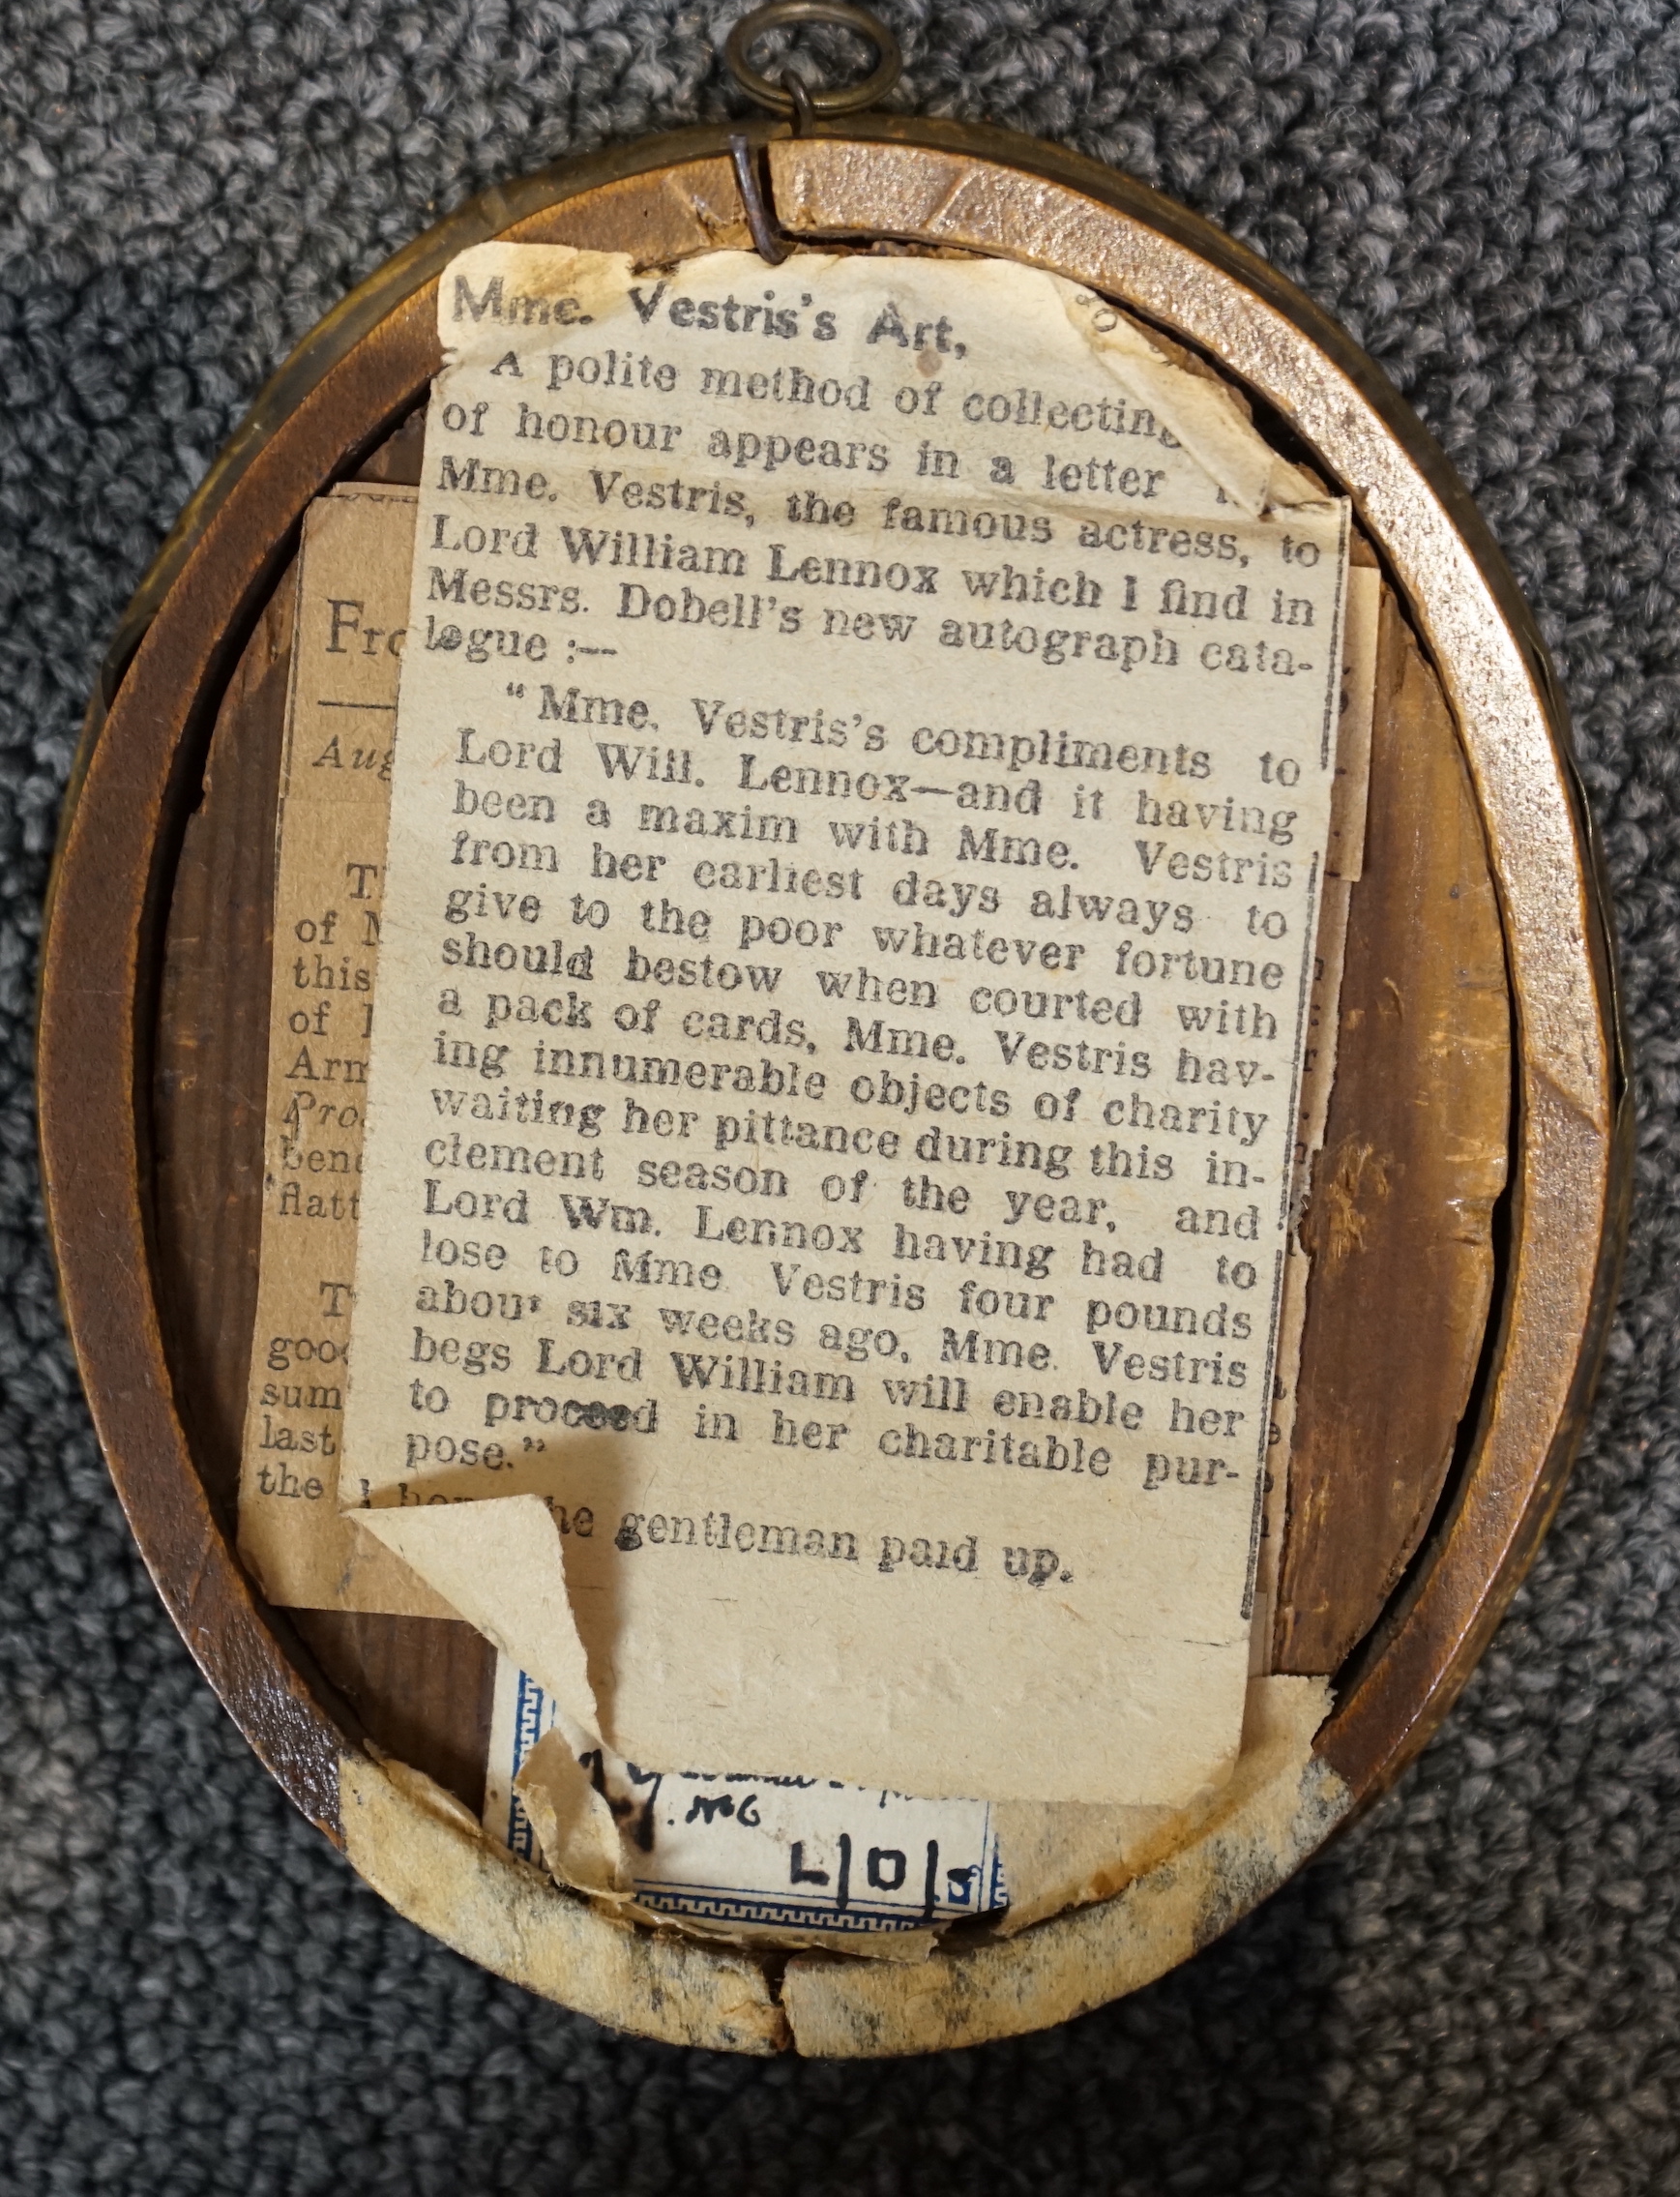 Mme. Vestris's Art,
A polite method of collecting
of honour appears in a letter
Mme. Vestris, the famous actress, to
Lord William Lennox which I find in
Messrs. Dobell's new autograph cata-
logue :—
“Mme. Vestris's compliments to
Lord Will. Lennox—and it having
been a maxim with Mme. Vestris
from her earliest days always to
give to the poor whatever fortune
should bestow when courted with
a pack of cards, Mme. Vestris hav-
ing innumerable objects of charity
waiting her pittance during this in-
clement season of the year, and
Lord Wm. Lennox having had to
lose to Mme. Vestris four pounds
about six weeks ago, Mme. Vestris
begs Lord William will enable her
to proceed in her charitable pur-
pose.”
gentleman paid up.
Fro
Aug
T
of M
this
of
Arm
Pro
bene
flatt
T
good
sum
last
the
No 6
L/D/